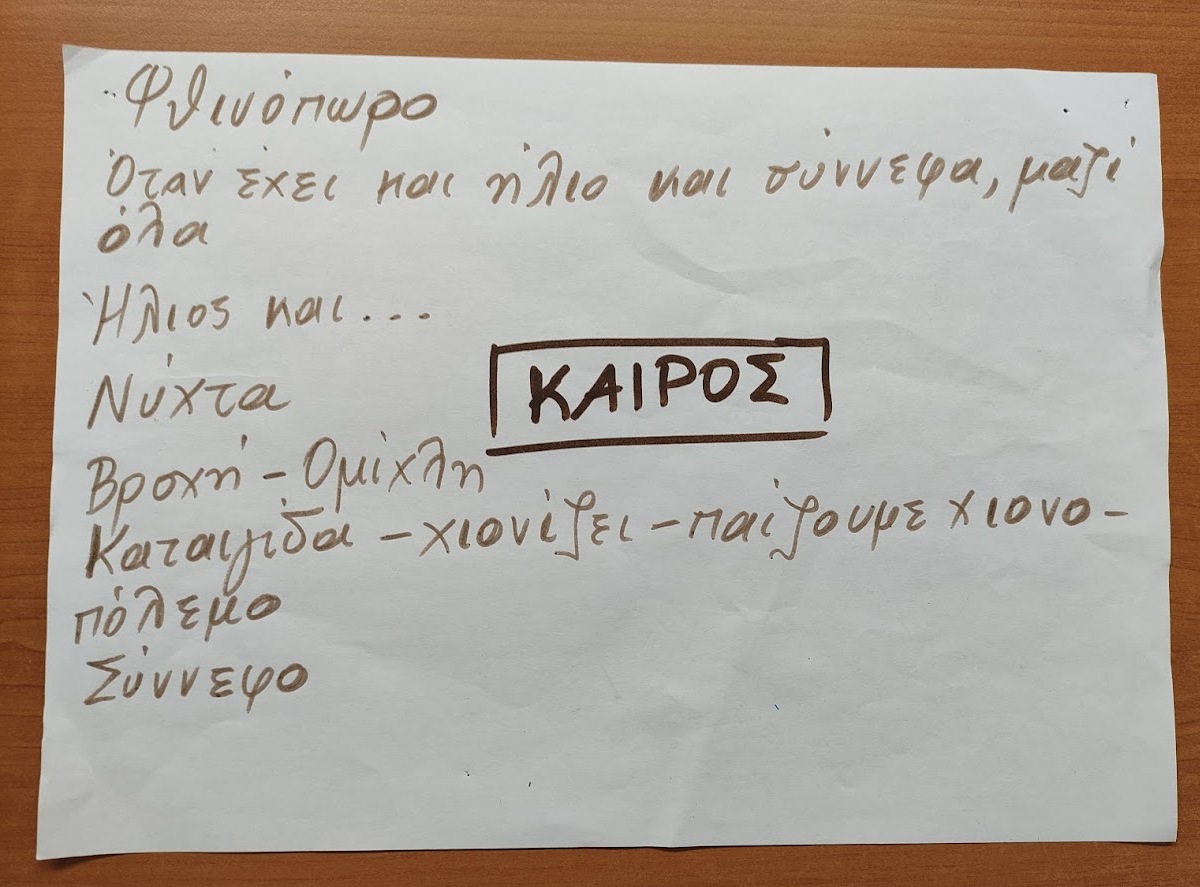 Φθινόπωρο
Όταν έχει και ήλιο και σύννεφα, μαζί
όλα
Ήλιος και...
Νύχτα
ΚΑΙΡΟΣ
Βροχή - Ομίχλη
Καταιγίδα - χιονίζει - παίζουμε χιονο-
πόλεμο
Σύννεφο